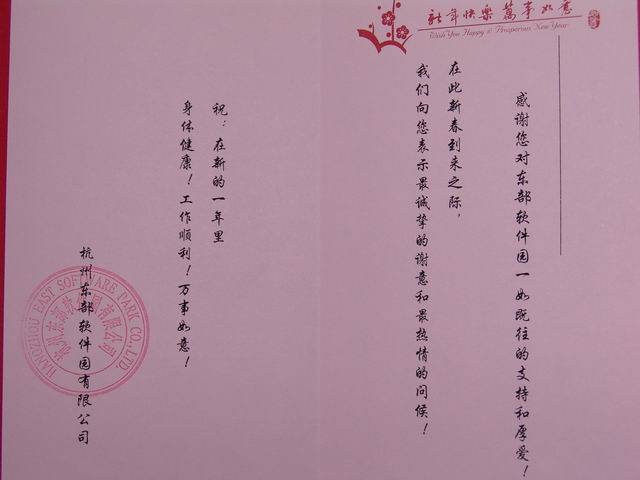 新年快樂 萬事如意
Wish You Happy & Prosperous New Year
感谢您对东部软件园一如既往的支持和厚爱！
在此新春到来之际，
我们向您表示最诚挚的谢意和最热情的问候！
祝：在新的一年里
身体健康！工作顺利！万事如意！
杭州东部软件园有限公司
HANGZHOU EAST SOFTWARE PARK CO.,LTD.
杭州东部软件园有限公司